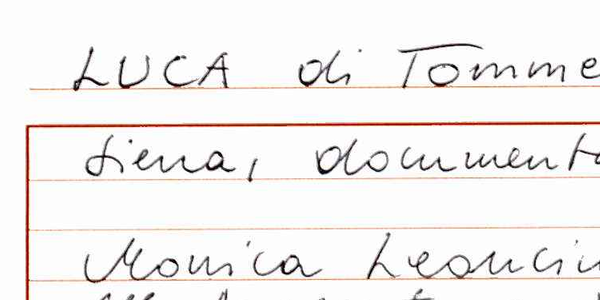 LUCA di Tomme
Siena, documenta
Monica Leoncin